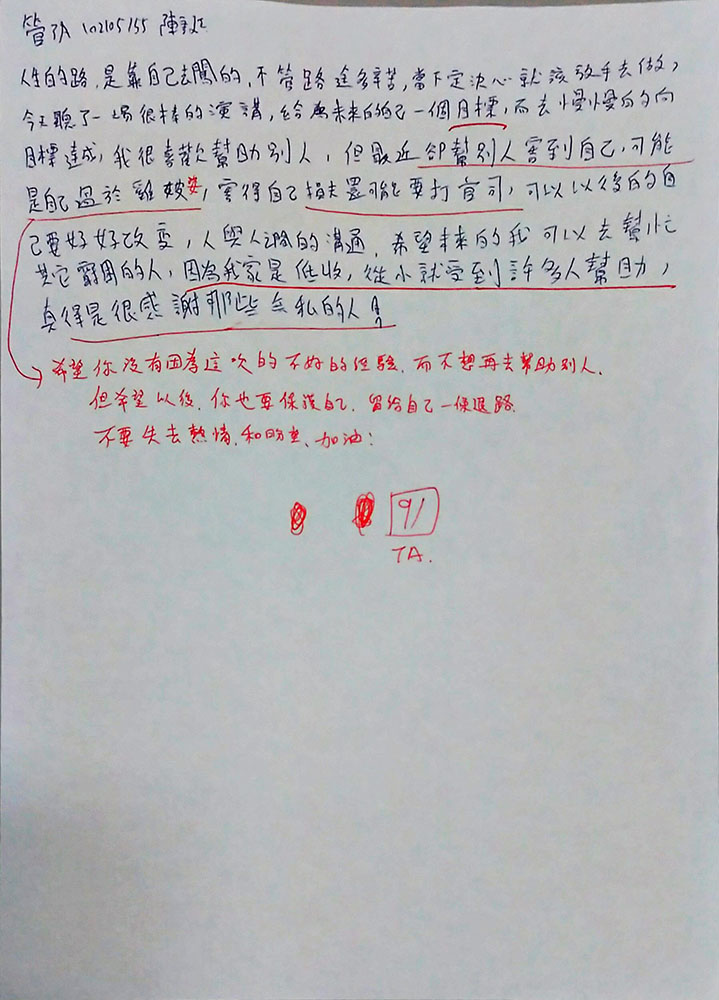 管1A 102105155 陳
人生的路,是靠自己去闖的,不管路途多辛苦,當下定決心就該放手去做,
今天聽了一場很棒的演講,給為未來的自己一個目標,而去慢慢的向
目標達成,我很喜歡幫助別人,但最近卻幫別人害到自己,可能
是自己過於雞婆婆,害得自己損失還可能要打官司,可以以後的自
己要好好改變,人與人之間的溝通,希望未來的我可以去幫忙
其它窮困的人,因為我家是低收,從小就受到許多人幫助,
真得是很感謝那些無私的人!
希望你沒有因為這次的不好的經驗,而不想再去幫助別人.
但希望以後,你也要保護自己,留給自己一條退路.
不要失去熱情,和,加油!
91
TA.